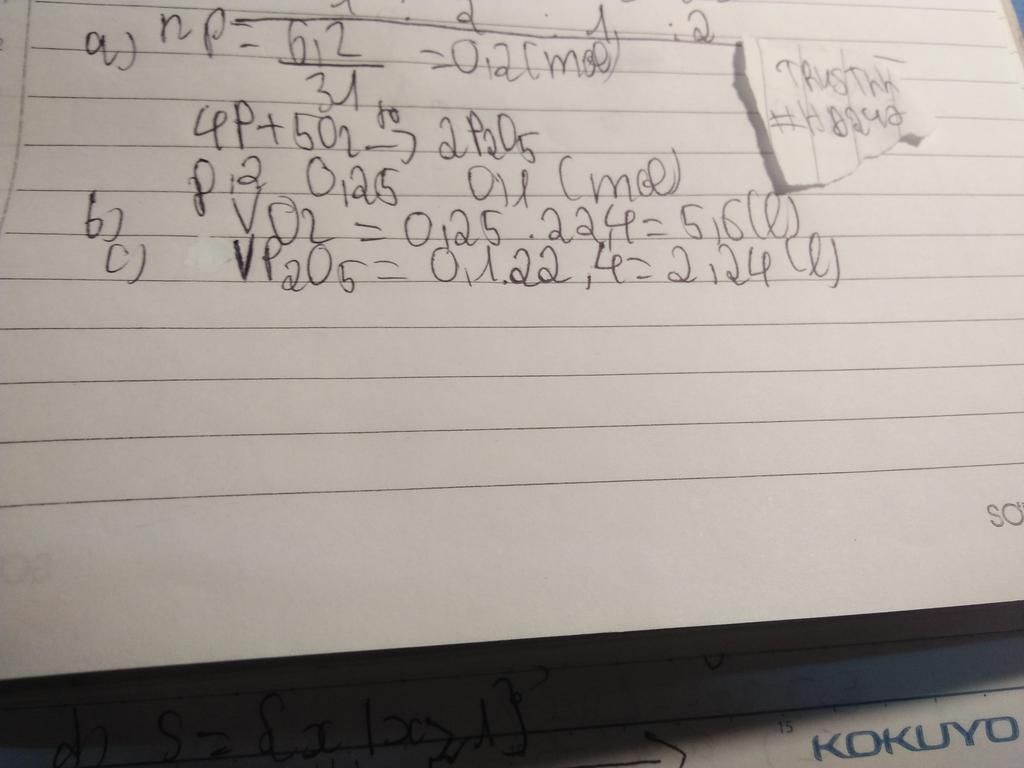 1 : 2 : 1 : 2
a) nP = 6,2 = 0,2 (mol)
31
4P + 5O2 t° → 2P2O5
0,2 0,25 0,1 (mol)
b) VO2 = 0,25 . 22,4 = 5,6 (l)
c) VP2O5 = 0,1 . 22,4 = 2,24 (l)
#H8242
SO
d) S = {x | x ≥ 1}
15
KOKUYO